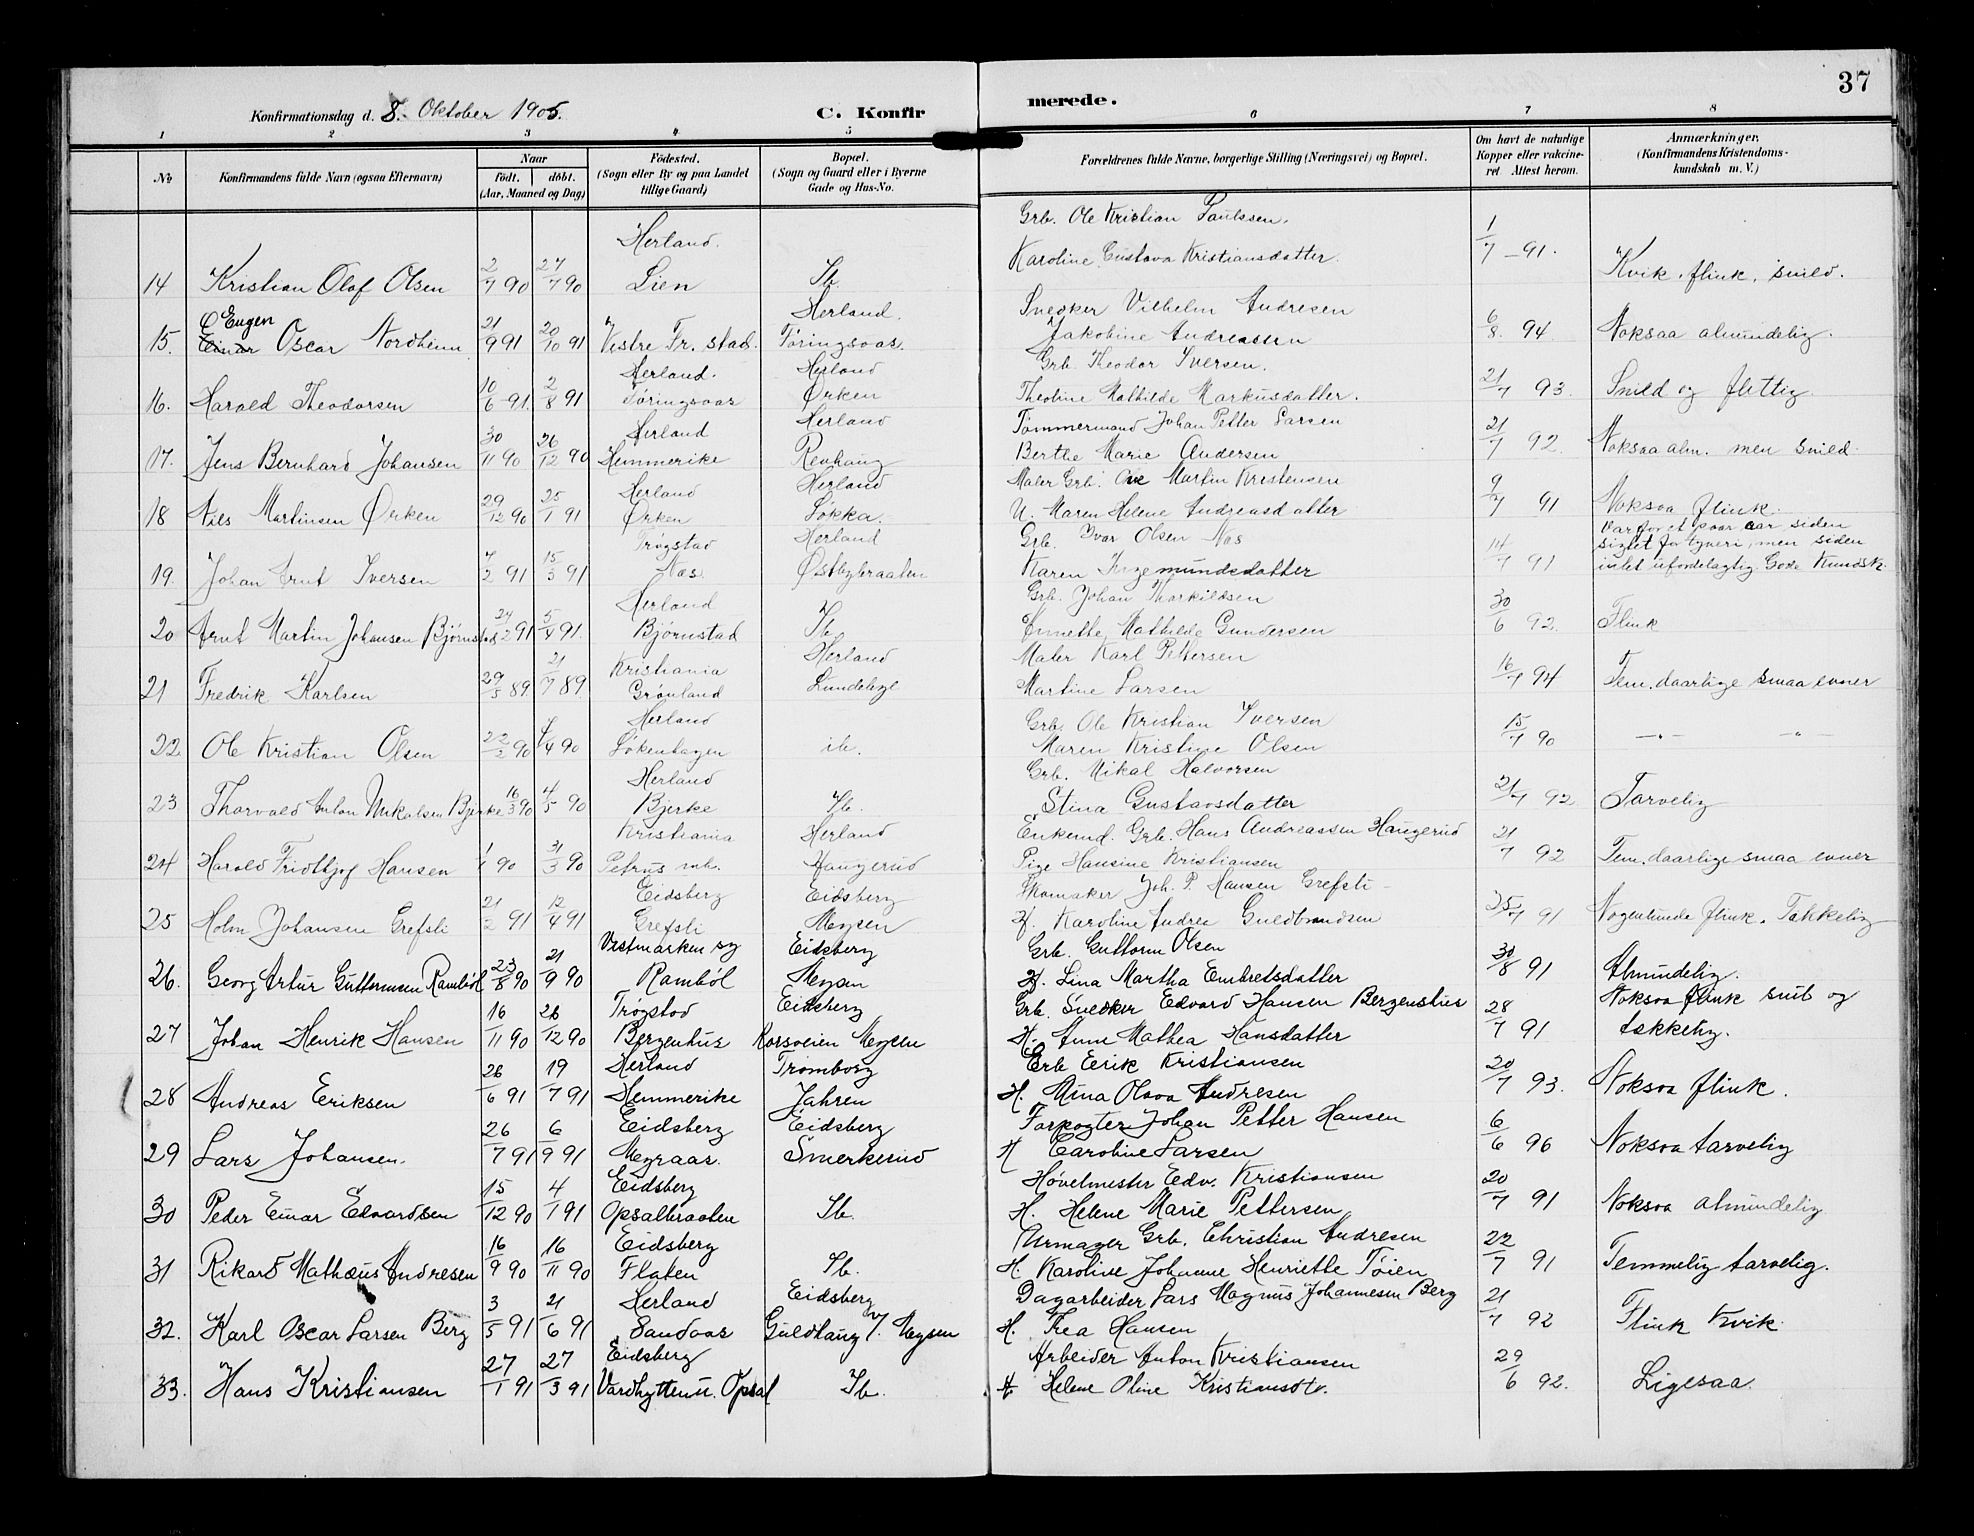 37
Konfirmationsdag d. 8. Oktober 1905. C. Konfirmerede.
1 2 3 4 5 6 7 8
No Konfirmandens fulde Navn (ogsaa Efternavn) Naar födt. döbt. (Aar, Maaned og Dag) Födested. (Sogn eller By og paa Landet tillige Gaard) Bopæl. (Sogn og Gaard eller i Byerne Gade og Hus-No. Forældrenes fulde Navne, borgerlige Stilling (Næringsvei) og Bopæl. Om havt de naturlige Kopper eller vakcineret Attest herom. Anmærkninger, (Konfirmandens Kristendomskundskab m. V.)
Herland. Grb. Ole Kristian Paulssen.
14 Kristian Olaf Olsen 2/7 90 27/7 90 Lien Ib. Karoline Gustava Kristiansdatter. 1/7 – 91. Kvik, flink, snild.
Eugen Herland. Snedker Vilhelm Andresen
15. Einar Oscar Nordheim 21/9 91 20/10 91 Vestre Fr. stad. Töringsaas. Jakobine Andreassen 6/8. 94 Noksaa almindelig.
Herland. Herland Grb. Theodor Iversen.
16. Harald Theodorsen 10/6 91. 2/8 91 Töringsaas Ørken Theoline Mathilde Markusdatter. 21/7 93. Snild og flittig.
Herland Herland Tømmermand Johan Petter Larsen
17. Jens Bernhard Johansen 30/11 90 26/12 90 Hemmerike Revhaug Berthe Marie Andersen 21/7 92. Noksaa alm. men snild.
Herland Herland Maler Grb. Ole Martin Kristensen
18 Nils Martinsen Ørken 29/12 90 25/1 91 Ørken Løkka. U. Maren Helene Andreasdatter 9/7 91 Noksaa flink.
Trøgstad Herland Grb. Ivar Olsen Næs Var for et paar aar siden
19. Johan Arnt Iversen 7/2 91 15/3 91 Næs. Østbybraaten Karen Ingemundsdatter 14/7 91 sigtet for tyveri, men siden intet ufordelagtig. Gode Kundsk.
Herland Grb. Johan Thorkildsen
20 Arnt Martin Johansen Bjørnstad 24/2 91 5/4 91. Bjørnstad Ib. Annette Mathilde Gundersen 30/6 92. Flink
Kristiania Herland Maler Karl Pettersen
21 Fredrik Karlsen 29/5 89 21/7 89. Grønland Lundeby Martine Larsen 16/7 94 Tem. daarlige smaa evner
Herland Grb. Ole Kristian Iversen
22. Ole Kristian Olsen 22/2 90 4/4 90 Løkenhagen ib. Maren Kristine Olsen 15/7 90 —"— —"—
Herland Grb. Mikal Halvorsen
23 Thorvald Anton Mikalsen Bjerke 16/3 90 4/5 90 Bjerke Ib. Stina Gustavsdatter 21/7 92. Tarvelig
Kristiania Herland Enkemd. Grb. Hans Andreassen Haugerud
24 Harald Fridtkjof Hansen 1/1 90 31/3 90 Petrus mh. Haugerud Pige Hansine Kristiansen 21/7 92 Tem. daarlige smaa evner
Eidsberg Eidsberg Skomaker Joh. P. Hansen Grefsli
25 Holm Johansen Grefsli 21/2 91 12/4 91 Grefsli Mysen H. Karoline Andrea Guldbrandsen 25/7 91 Nogenlunde flink. Tækkelig
Vestmarken sg Eidsberg Grb. Guttorm Olsen
26. Georg Artur Guttormsen Rambøl 23/8 90 21/9 90 Rambøl Mysen H. Lina Martha Embretsdatter 30/8 91 Almindelig.
Trøgstad Eidsberg Grb. Snedker Edvard Hansen Bergenhus Noksaa flink snil og
27 Johan Henrik Hansen 16/11 90 26/12 90 Bergenhus Korsveien Mysen H. Anne Mathea Hansdatter 28/7 91 tækkelig.
Herland Trømborg Grb Eerik Kristiansen
28 Andreas Eriksen 26/6 91 19/7 91 Hemmerike Jahren H. Mina Olava Andresen 20/7 93. Noksaa flink.
Eidsberg Eidsberg Forpagter Johan Petter Hansen
29 Lars Johansen. 26/7 91 6/9 91 Myraas. Smerkerud H Caroline Larsen 6/6 96 Noksaa tarvelig
Eidsberg Høvelmester Edv. Kristiansen
30 Peder Einar Edvardsen 15/12 90 4/1 91 Opsalbraaten Ib. H. Helene Marie Pettersen 20/7 91 Noksaa almindelig
Eidsberg Urmager Grb. Christian Andresen
31 Rikard Mathæus Andresen 16/9 90 16/11 90 Flaten Ib. H. Karoline Johanne Henriette Tøien 22/7 91 Temmelig tarvelig.
Herland Eidsberg Dagarbeider Lars Magnus Johannesen Berg
32. Karl Oscar Larsen Berg 3/5 91 21/6 91 Sandaas Guldhaug v/. Mysen H. Thea Hansen 21/7 92 Flink Kvik.
Eidsberg Arbeider Anton Kristiansen
33. Hans Kristiansen 27/1 91 27/3 91 Vardhytten u. Opsal Ib. H Helene Oline Kristiansdtr. 29/6 92. Ligesaa.